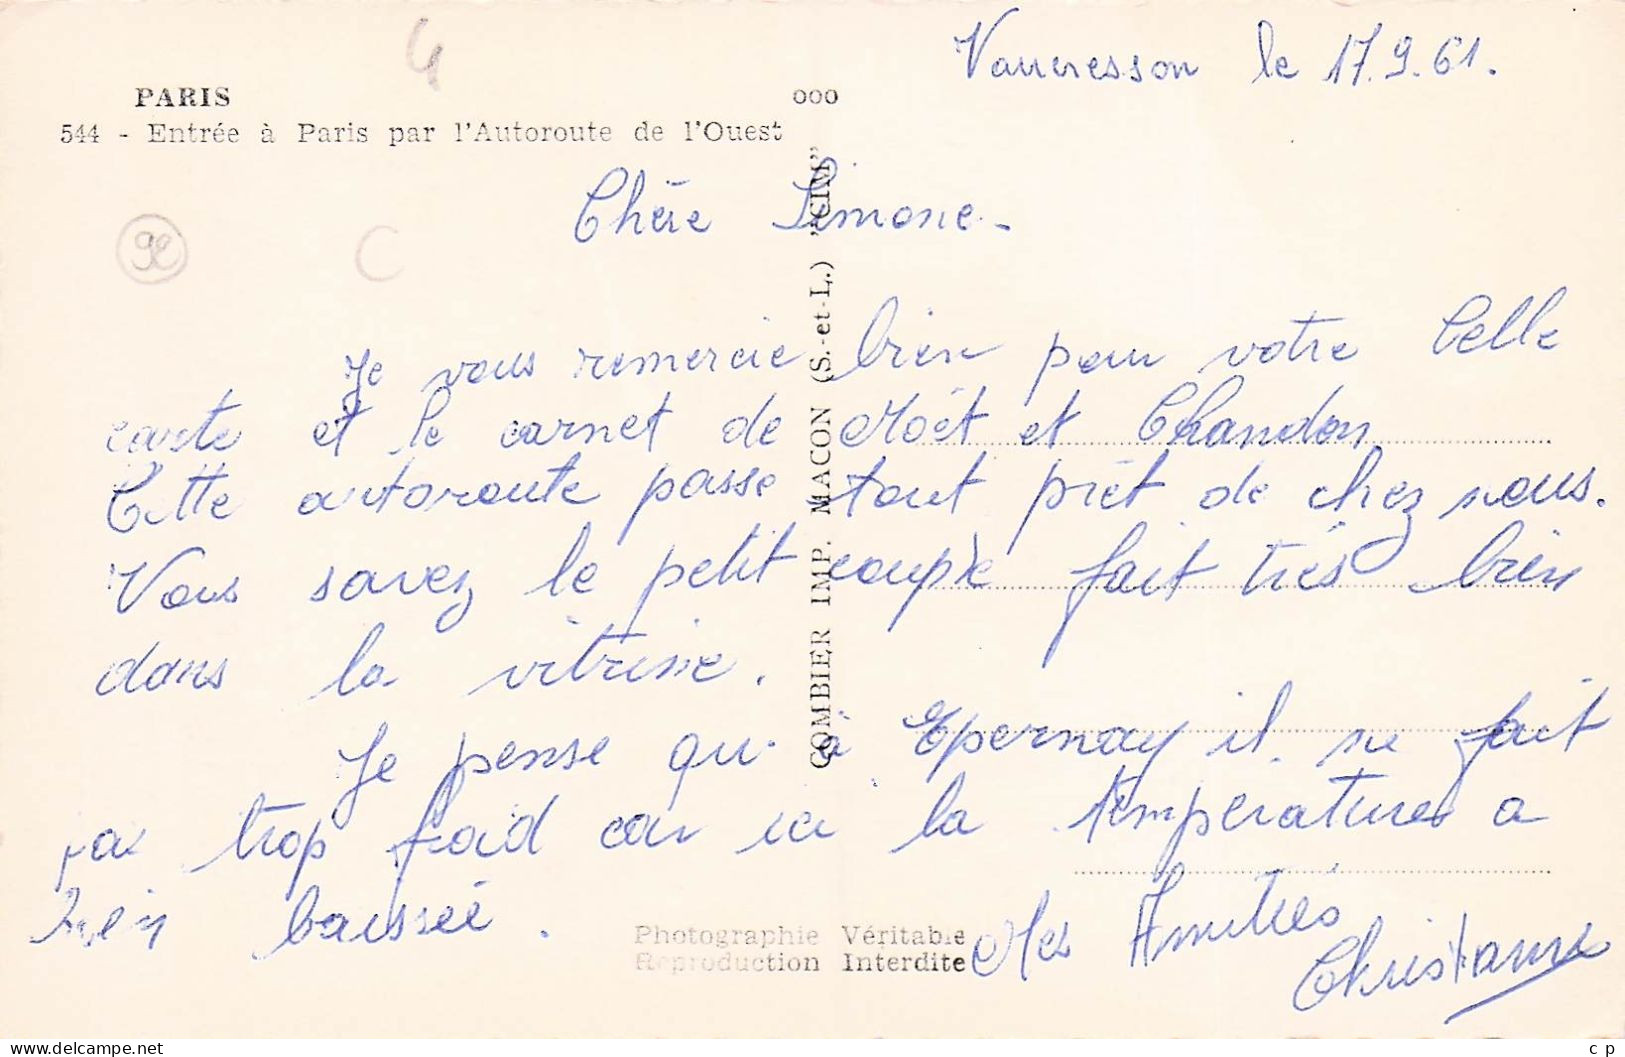 4
Vaucresson le 17.9.61.
PARIS
ooo
544 - Entrée à Paris par l'Autoroute de l'Ouest
Chère Simone -
92
C
Je vous remercie bien pour votre belle
carte et le carnet de Moët et Chandon.
Cette autoroute passe tout prêt de chez nous.
Vous savez le petit coupè fait très bien
dans la vitrine.
Je pense qu'à Epernay il ne fait
pas trop froid car ici la temperature a
bien baissée.
Mes Amitiés
Christiane
COMBIER IMP. MACON (S.-et-L.) "CIM"
Photographie Véritable
Reproduction Interdite
delcampe.net
c p